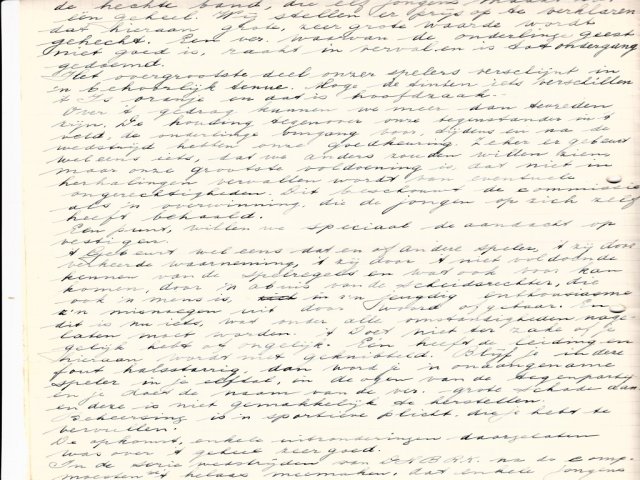 de hechte band, die elf jongens
een geheel. Wij stellen er prijs op te verklaren
dat hieraan zeer grote waarde wordt
gehecht. Een ver. waarvan de onderlinge geest
niet goed is, raakt in verval en is tot ondergang
gedoemd.
Het overgrootste deel onzer spelers verschijnt in
'n behoorlijk tenue. Hoge de tinten iets verschillen
't Is oranje en dat is hoofdzaak.
Over 't gedrag kunnen we meer dan tevreden
zijn. De houding tegenover onze tegenstander in 't
veld, de onderlinge omgang voor, tijdens en na de
wedstrijd hebben onze goedkeuring. Zeker er gebeurt
wel eens iets, dat we anders zouden willen zien,
maar onze grootste voldoening is, dat niet in
herhalingen vervallen wordt van eventuele
ongerechtigheden. Dit beschouwt de commissie
als 'n overwinning, die de jongen op zich zelf
heeft behaald.
Een punt, willen we speciaal de aandacht op
vestigen.
't Gebeurt wel eens dat en of andere speler, 't zij door
verkeerde waarneming, 't zij door 't niet voldoende
kennen van de spelregels en wat ook voor kan
komen, door 'n abuis van de scheidsrechter, die
ook 'n mens is, in z'n jeugdig enthousiasme
z'n misnoegen uit door woord of gebaar en
dit is nu iets, wat onder alle omstandigheden nage-
laten moet worden. 't Doet niet ter zake of je
gelijk hebt of ongelijk. Een heeft de leiding en
hieraan wordt niet geknibbeld. Blijf je in deze
fout halsstarrig, dan word je 'n onaangename
speler in je elftal, in de ogen van de tegenpartij
en je doet de naam van de ver. grote schade aan
en deze is niet gemakkelijk te herstellen.
Beheersing is 'n sportieve plicht, die je hebt te
vervullen.
De opkomst, enkele uitzonderingen daargelaten
was over 't geheel zeer goed.
In de serie wedstrijden van de na de comp.
moesten we helaas meemaken, dat enkele jongens